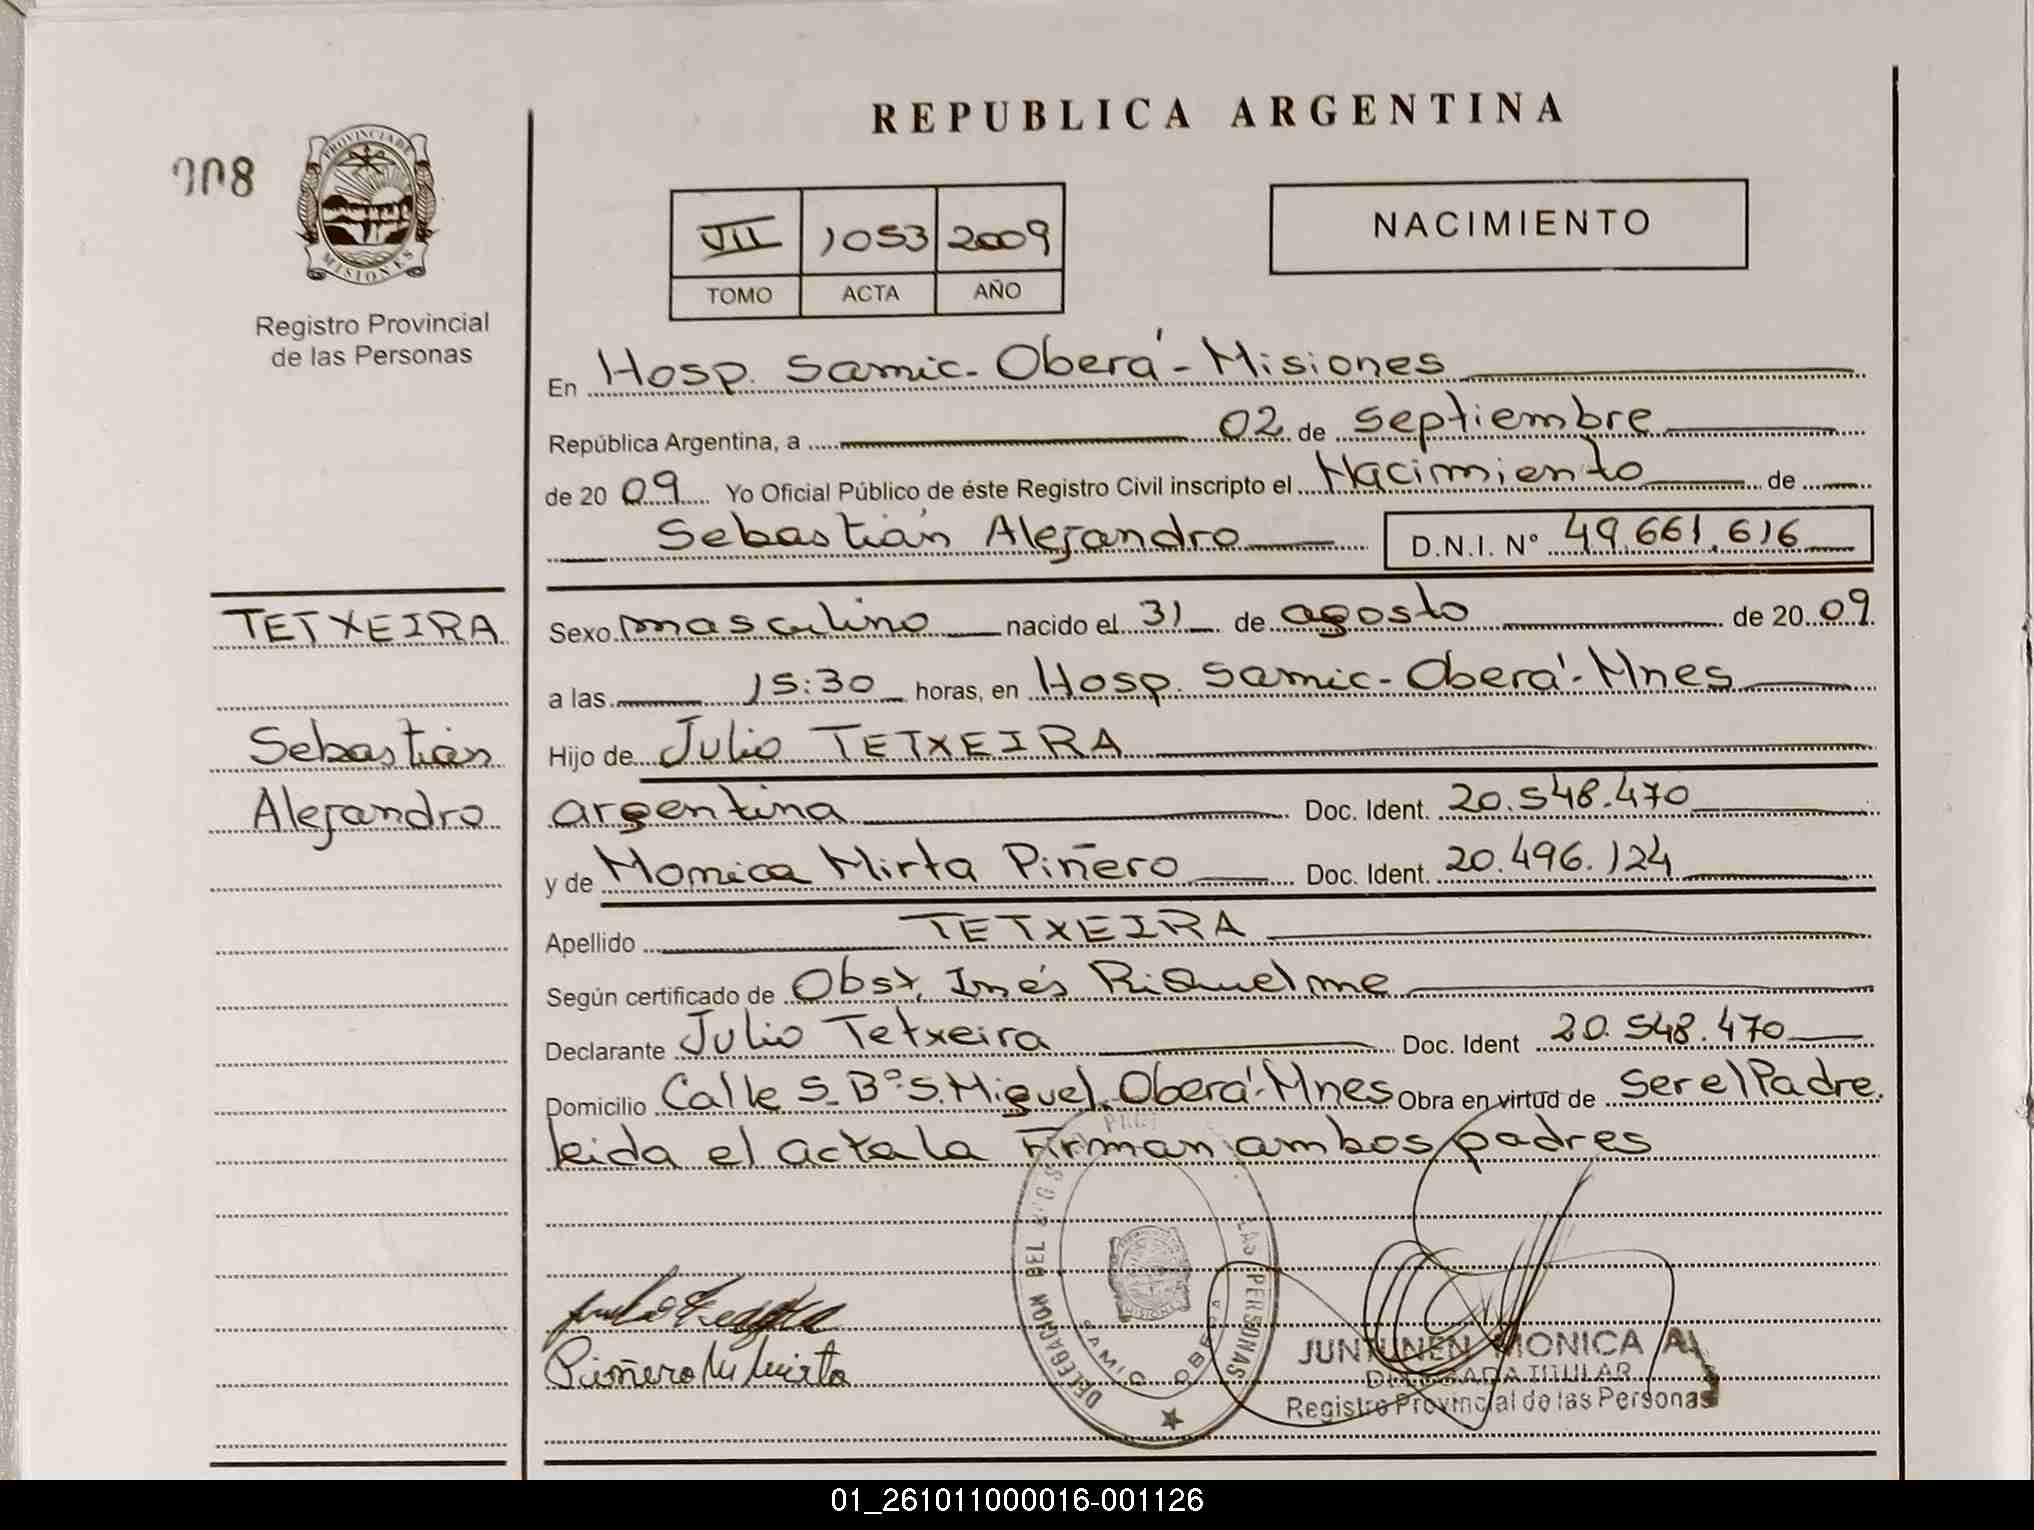 REPUBLICA ARGENTINA
008
PROVINCIA DE
MISIONES
Registro Provincial
de las Personas
VII 1053 2009
TOMO ACTA AÑO
NACIMIENTO
En Hosp. Samic - Oberá - Misiones
República Argentina, a 02 de Septiembre
de 2009 Yo Oficial Público de éste Registro Civil inscripto el Nacimiento de
Sebastián Alejandro D.N.I. Nº 49.661.616
TETXEIRA
Sebastián
Alejandro
Sexo masculino nacido el 31 de agosto de 2009
a las 15:30 horas, en Hosp. Samic - Oberá - Mnes
Hijo de Julio TETXEIRA
argentina Doc. Ident. 20.548.470
y de Monica Mirta Piñero Doc. Ident. 20.496.124
Apellido TETXEIRA
Según certificado de Obst. Inés Riquelme
Declarante Julio Tetxeira Doc. Ident 20.548.470
Domicilio Calle S. Bº S. Miguel. Oberá - Mnes Obra en virtud de Ser el Padre.
leida el acta la Firman ambos padres
DELEGACION DEL LAS PERSONAS
SAMIC OBERA
MISIONES
Piñero M Mirta
JUNTUNEN MONICA A.
DELEGADA TITULAR
Registro Provincial de las Personas
01_261011000016-001126